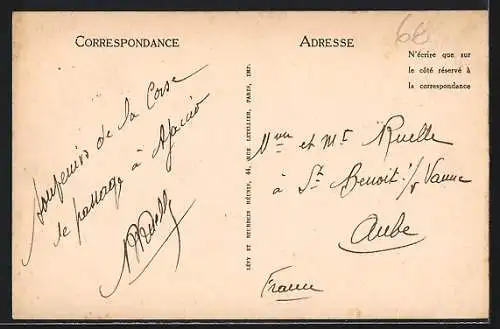 CORRESPONDANCE
Souvenirs de la Corse
de passage à Ajaccio
Ruelle
LÉVY ET NEURDEIN RÉUNIS, 44, RUE LETELLIER, PARIS, IMP.
ADRESSE
68
N'écrire que sur
le côté réservé à
la correspondance
et Mr Ruelle
à St Benoit s/ Vanne
Aube
France